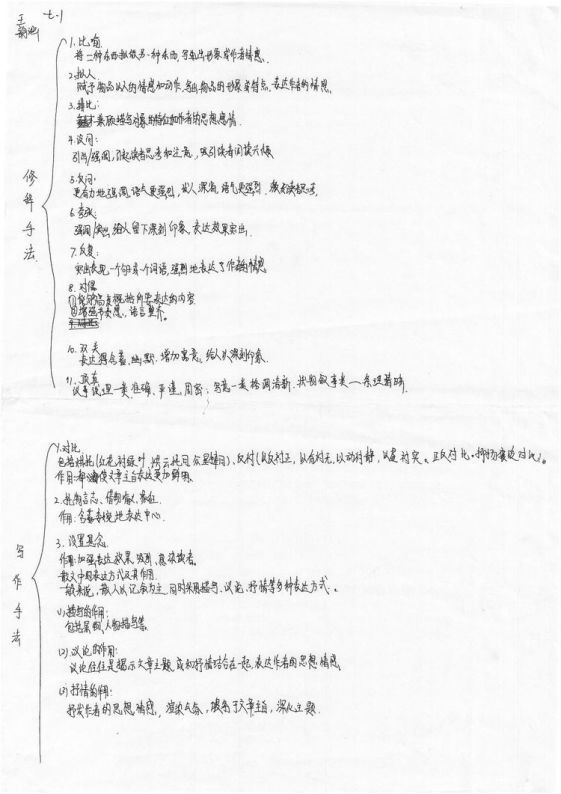 七-1
修辞手法
1. 比喻
将一种东西比做另一种东西,写出形象
2. 拟人
赋予物品以人的情感和动作,写出物品的形象或特点,表达作者的情感。
3. 排比:
4. 设问:
引出/强调,引起读者思考和注意,吸引读者阅读兴趣
5. 反问:
更有力地强调,语气更强烈,发人深省,语气更强烈
6. 夸张:
强调/突出,给人留下深刻印象,表达效果突出.
7. 反复:
突出表现一个句子或一个词语,强烈地表达了作者的情感
8. 对偶
①能够高度概括所要表达的内容
②增强节奏感,语言整齐。
10. 双关
表达得含蓄、幽默,增加寓意,给人以深刻印象.
11. 顶真
议事说理一类准确、严谨,周密;写景一类格调清新.状物叙事类一条理清晰.
写作手法
1. 对比
包括烘托(红花衬绿叶,烘云托月,众星捧月)、反衬(以反衬正,以有衬无,以动衬静,以虚衬实。正反对比。
作用:使文章主旨表达更加鲜明。
2. 托物言志、借物喻人、象征
作用:含蓄委婉地表达中心.
3. 设置悬念.
作用:加强表达效果,吸引读者。
散文中的表达方式及其作用.
一般来说,散文以记叙为主,同时采用描写、议论、抒情等多种表达方式。
(1)描写的作用:
包括景物、人物描写等.
(2)议论的作用:
议论往往是揭示文章主题,或和抒情结合在一起,表达作者的思想情感。
(3)抒情的作用:
抒发作者的思想情感,渲染气氛,服务于文章主旨,深化主题.